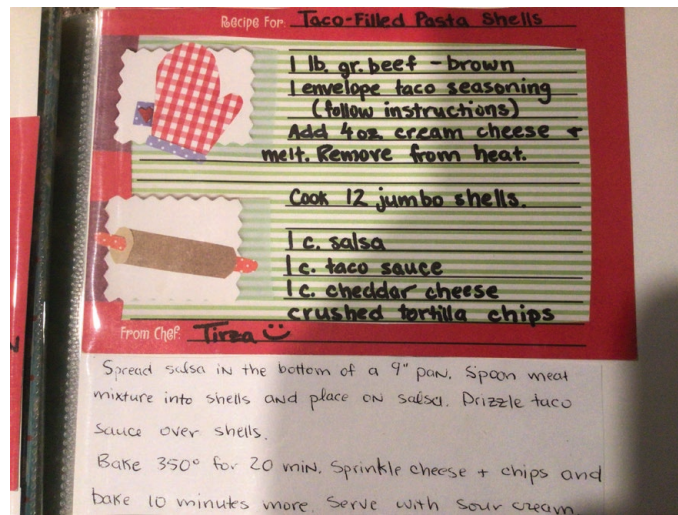 Recipe For: Taco-Filled Pasta Shells
1 lb. gr. beef - brown
1 envelope taco seasoning
(follow instructions)
Add 4oz. cream cheese +
melt. Remove from heat.
Cook 12 jumbo shells.
1 c. salsa
1 c. taco sauce
1 c. cheddar cheese
crushed tortilla chips
From Chef: Tirza
Spread salsa in the bottom of a 9" pan. Spoon meat
mixture into shells and place on salsa. Drizzle taco
sauce over shells.
Bake 350° for 20 min. Sprinkle cheese + chips and
bake 10 minutes more. Serve with sour cream.